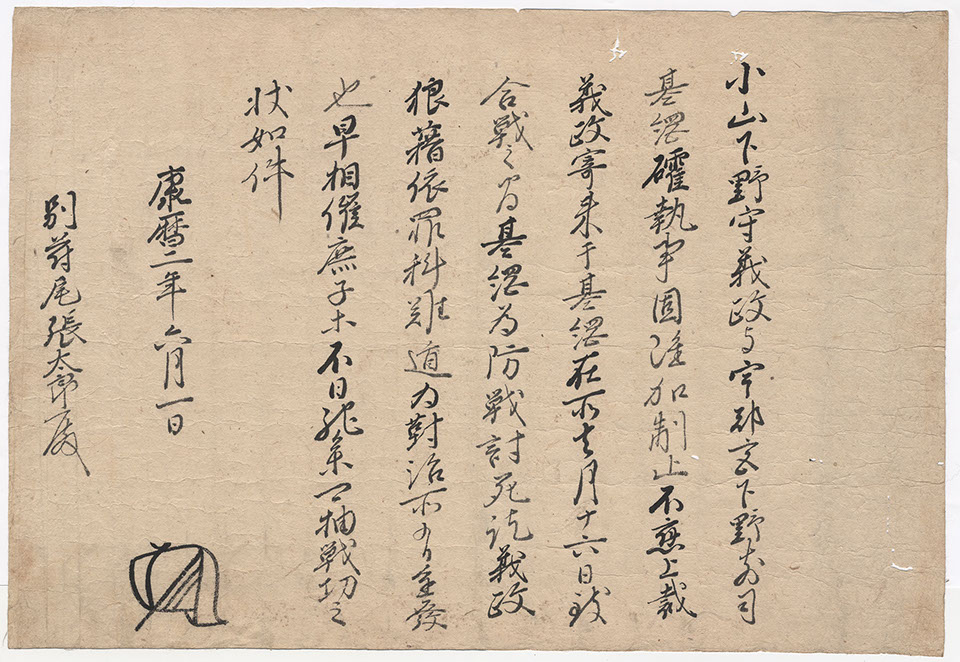 小山下野守義政与宇都宮下野前司
基綱確執事固雖加制止不応上裁
義政寄来于基綱在所去月十六日致
合戦之間基綱為防戦討死訖義政
狼藉依罪科難遁為対治所有進発
也早相催庶子等不日馳参可抽戦功之
状如件
康暦二年六月一日
別苻尾張太郎殿